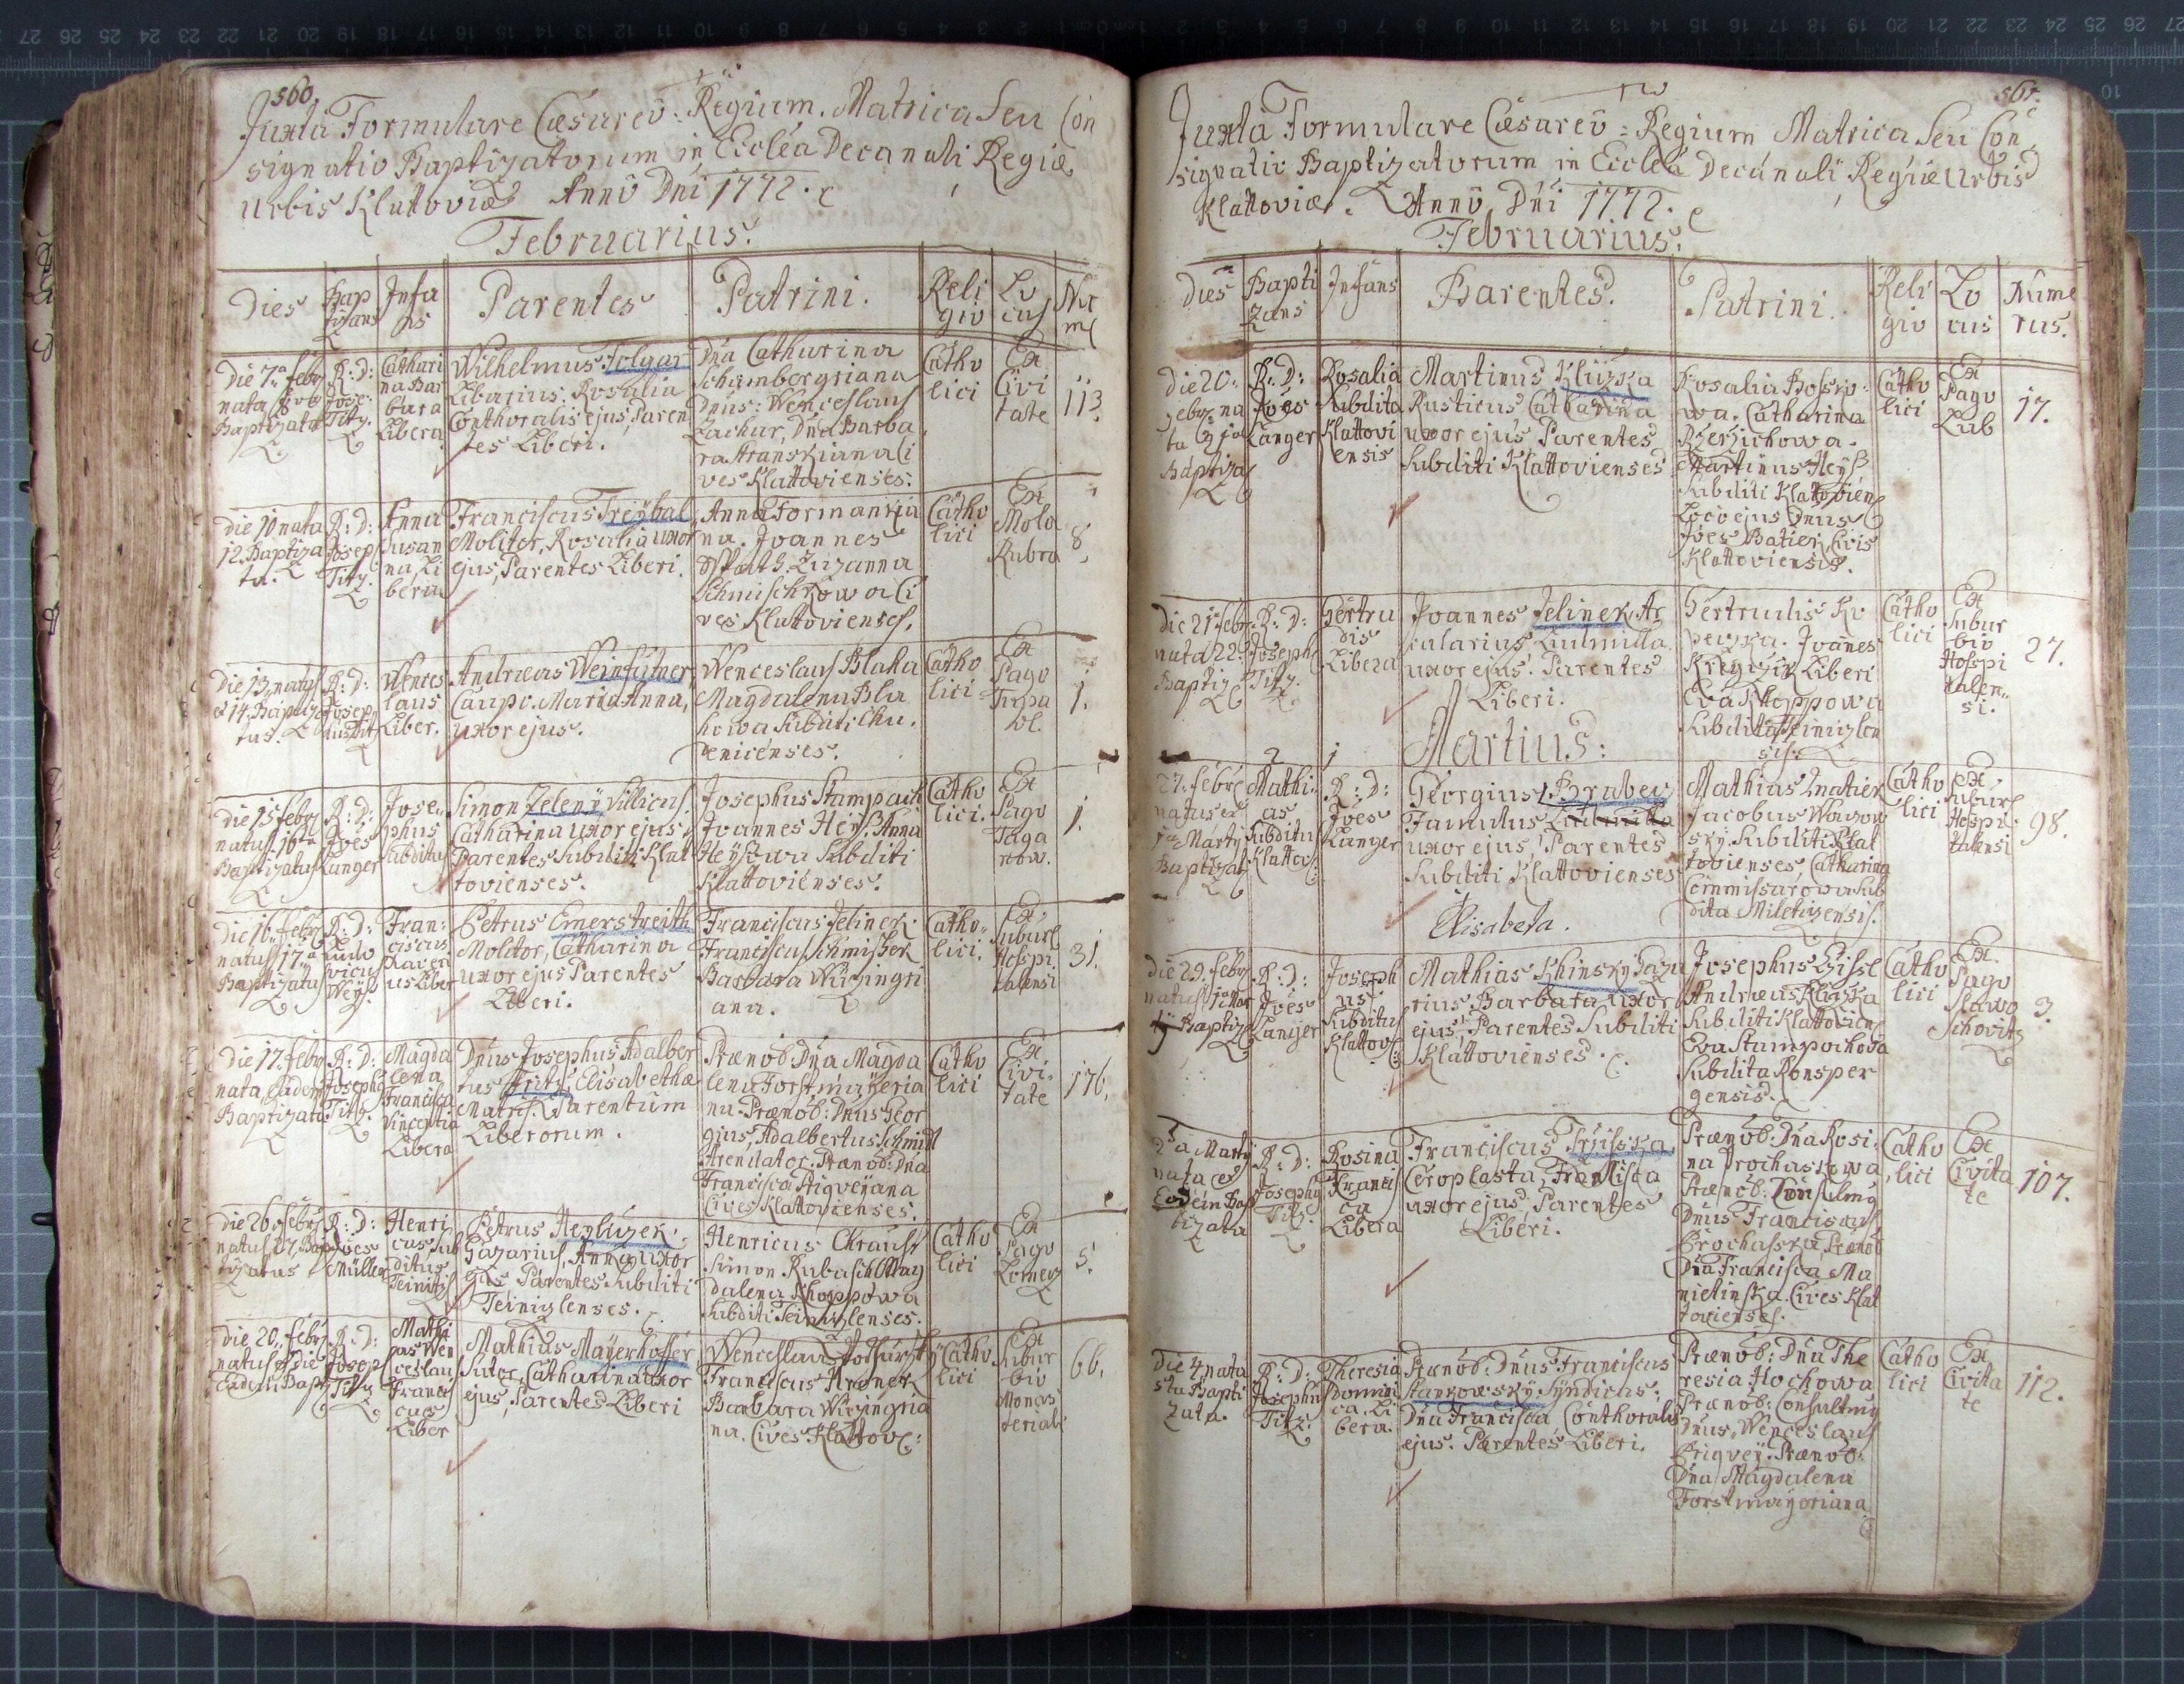 560.
Juxta Formulare Cæsareo: Regium. Matrica Seu Con
signatio Baptizatorum in Eccléa Decanali Regiæ
Urbis Klattoviæ Anno Dni 1772.
Februarius.
Dies
Bap
tisans
Infa
ns
Parentes
Patrini.
Reli
gio
Lo
cus
Nu
me
Die 7a febr
nata
Baptizata
R: D:
Jose:
Titz.
Cathari
na Bar
bara
Libera
Wilhelmus Folgar
Libarius. Rosalia
Conthoralis ejus, Paren
tes Liberi.
Dna Catharina
Schambergriana
Dnus: Wenceslaus
Zachar, Dna Barba
ra Stranskiana Ci
ves Klattovienses.
Catho
lici
Ex
Civi
tate
113.
Die 10 nata
12. Baptiza
ta.
R: D:
Josep
Titz.
Anna
Susan
na, Li
bera
Franciscus Treybal
Molitor, Rosalia uxor
ejus, Parentes Liberi.
Anna Formankia
na. Joannes
Zuzanna
Schmischkowa Ci
ves Klattovienses.
Catho
lici
Ex
Mola
Rubra
8.
Die 13. natus
et 14. Baptiza
tus.
R: D:
Josep
Wences
laus
Liber.
Andreas Weinfurtner
Caupo. Maria Anna,
uxor ejus.
Wenceslaus Blaha
Magdalena Bla
howa Subditi Chu.
denicenses.
Catho
lici
Ex
Pago
1.
Die 15 febr
natus. 16ta
Baptizatus
R: D:
Joes
Langer
Jose..
phus
Subditus
Simon Zeleny Villicus.
Catharina uxor ejus,
Parentes Subditi Klat
tovienses.
Josephus Stampach
Joannes Heyß. Anna
Heyßowa Subditi
Klattovienses.
Catho
lici.
Ex
Pago
Taga
now.
1.
Die 16. febr
natus 17a
Baptizatus
R: D:
Ludo
vicus
Weyß.
Fran:
ciscus
Xaveri
us Liber
Petrus Emerstreith
Molitor, Catharina
uxor ejus Parentes
Liberi.
Franciscus Jelinek.
Franciscus Schmißek
Barbara Wizingri
ana.
Catho..
lici.
Ex
Suburb
Hospi
talensi
31.
Die 17. febr
nata, Eadem
Baptizata
R: D:
Joseph
Titz.
Magda
lena
Francisca
Vincentia
Libera
Dnus Josephus Adalber
tus Fritz, Elisabethæ
Matris. Parentum
Liberorum.
Prænob: Dna Magda
lena Forstmayeria
na. Prænob: Dnus Geor
gius, Adalbertus Schmidt
Arendator. Prænob: Dna
Francisca Prigveyana
Cives Klattovienses.
Catho
lici
Ex
Civi.
tate
176.
Die 26. febr
natus, 27. Bap
tizatus
R: D:
Joes
Müller
Henri
cus Sub
ditus
Teinitz
Petrus Hezluzek.
Gazarius, Anna uxor
ejus Parentes Subditi
Teinizlenses.
Henricus Chraust
Simon Kubasch Mag
dalena Khoppowa
Subditi Teinizlenses.
Catho
lici
Ex
Pago
Lomez
5.
Die 20.. febr
natus
Eadem Bapt
R: D:
Josep
Titz
Mathi
as Wen
ceslaus
Francis
cus
Liber
Mathias Mayerhoffer
Sutor, Catharina uxor
ejus, Parentes Liberi
Wenceslaus
Franciscus Kroner
Barbara Wizingria
na. Cives Klattov:
Catho
lici
Ex
Subur
bio
Monas
teriali
66.
561.
Juxta Formulare Cæsareo: Regium Matrica Seu Con
signatio Baptizatorum in Eccléa Decánali Regiæ Urbis
Klattoviæ. Anno Dni 1772.
Februarius.
Dies
Bapti
zans
Infans
Parentes.
Patrini.
Reli
gio
Lo
cus
Nume
rus.
Die 20.
Febr. na
ta
Baptiza
R: D:
Joes
Langer
Rosalia
Subdita
Klattovi
ensis
Martinus Kliizka
Rusticus Catharina
uxor ejus Parentes
Subditi Klattovienses
Rosalia Bosko:
wa. Catharina
Rzerzichowa.
Martinus Heyß
Subditi Klattovien
Loco ejus Dnus
Joes Batier, Civis
Klattoviensis.
Catho
lici
Ex
Pago
Lub
17.
Die 21 febr.
nata 22.
Baptiz
R: D:
Joseph
Titz.
Gertru
dis
Libera
Joannes Jelinek, Ar
cularius Ludmilla
uxor ejus. Parentes
Liberi.
Gertrudis Ko
peczka. Joanes
Liberi
Eva Khoppowa
Subdita Teinizlen
sis.
Catho
lici
Ex
Subur
bio
Hospi
talen..
si.
27.
Martius:
2
1
27. febr
natus et
1a Marty
Baptizat
Mathi:
as
Subditus
Klattov:
R: D:
Joes
Langer
Georgius Brabec
Famulus Ludmilla
uxor ejus, Parentes
Subditi Klattovienses
Elisabeta.
Mathias Smatier
Jacobus Wawow
sky. Subditi Klat
tovienses, Catharina
Commissarowa Sub
dita Miletizensis.
Catho
lici
Ex
Suburb
Hospi.
talensi
98.
Die 29. febr
natus 1a Mar
ty Baptiz
R: D:
Joes
Langer
Joseph
us
Subditus
Klattov:
Mathias Khinsky Gaza
rius, Barbara uxor
ejus, Parentes Subditi
Klattovienses.
Josephus Gissl
Andreas Kliczka
Subditi Klattovien
Eva Stampochova
Subdita Ronsper
gensis.
Catho
lici
Ex
Pago
Slawo
schovitz
3.
2da Marty
nata et
Eodem Bap
tizata
R: D:
Josephus
Titz.
Rosina
Francis
ca
Libera
Franciscus Trziska
Ceroplasta, Francisca
uxor ejus, Parentes
Liberi.
Prænob: Dna Rosi
na Prochaskowa
Prænob: Consultmg
Dnus Franciscus
Prochasska, Prænob
Dna Francisca Ma
nietinska. Cives Klat
tovienses.
Catho
lici
Ex
Civita
te
107.
Die 4. nata
5ta Bapti
zata.
R: D:
Josephus
Titz.
Theresia
Domini
ca, Li
bera.
Prænob: Dnus Franciscus
Stankowsky Syndicus:
Dna Francisca Conthoralis
ejus. Parentes Liberi.
Prænob: Dna The
resia Hochowa
Prænob: Consultmg
Dnus, Wenceslaus
Prigvey. Prænob:
Dna Magdalena
Forstmayeriana
Catho
lici
Ex
Civita
te
112.